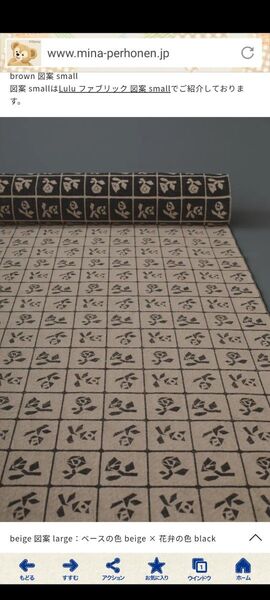 www.mina-perhonen.jp
brown 図案 small
図案 smallはLulu ファブリック 図案 smallでご紹介しておりま
す。
beige 図案 large：ベースの色 beige × 花弁の色 black
もどる すすむ アクション お気に入り ウインドウ ホーム